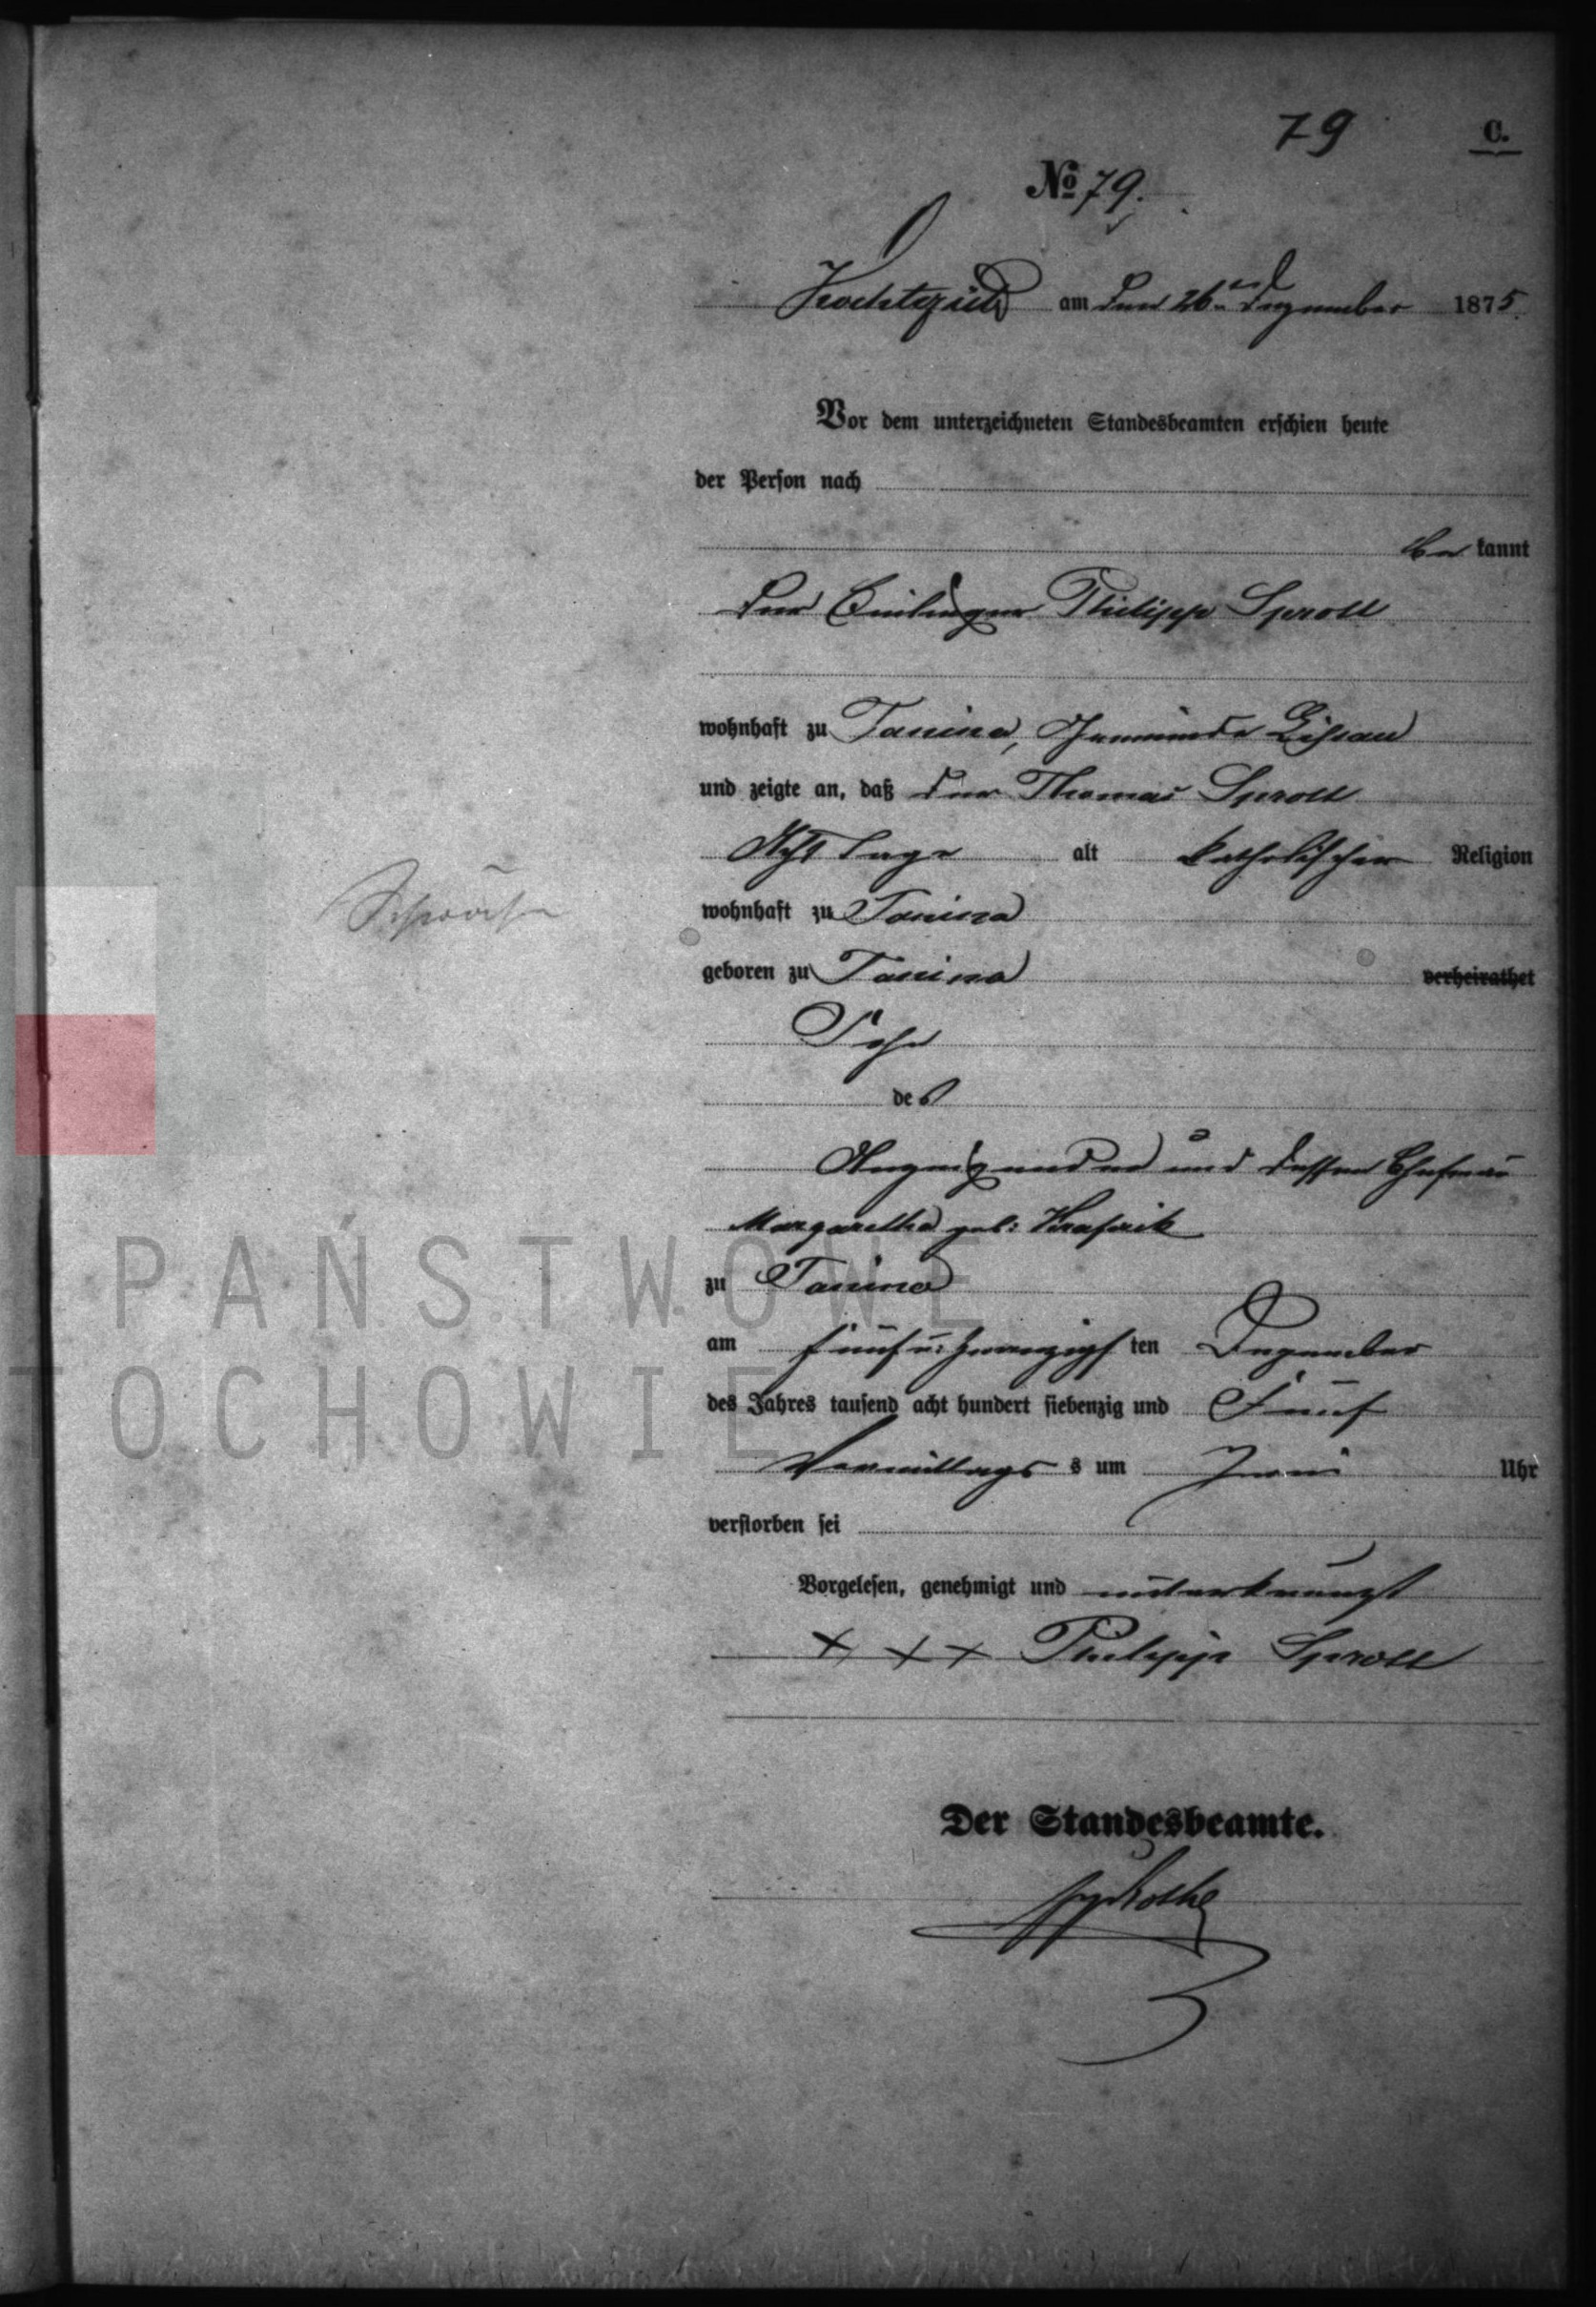 79 C.
№ 79.
Kochtzütz am den 26ten Dezember 1875.
Vor dem unterzeichneten Standesbeamten erschien heute
der Person nach
be kannt
der Einlieger Philipp Sproll
wohnhaft zu Tanina, Gemeinde Lissau
und zeigte an, daß der Thomas Sproll
Acht Tage alt katholischer Religion
wohnhaft zu Tanina
Schwäche
geboren zu Tanina verheirathet
Sohn
des
Anzeigenden und dessen Ehefrau
Margaretha geb: Krafzik
zu Tanina
am fünf u: zwanzigs ten Dezember
des Jahres tausend acht hundert siebenzig und Fünf
Vormittags s um Zwei Uhr
verstorben sei
Vorgelesen, genehmigt und unterkreuzt
+ + + Philipp Sproll
Der Standesbeamte.
PAŃSTWOWE
TOCHOWIE